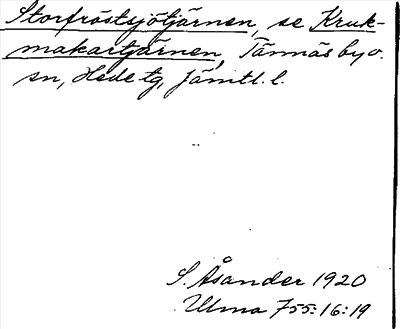 Storfröstsjötjärnen, se Kruk-
makartjärnen, Tännäs by o.
sn, Hede tg, Jämtl. l.
S. Åsander 1920
Ulma 755:16:19